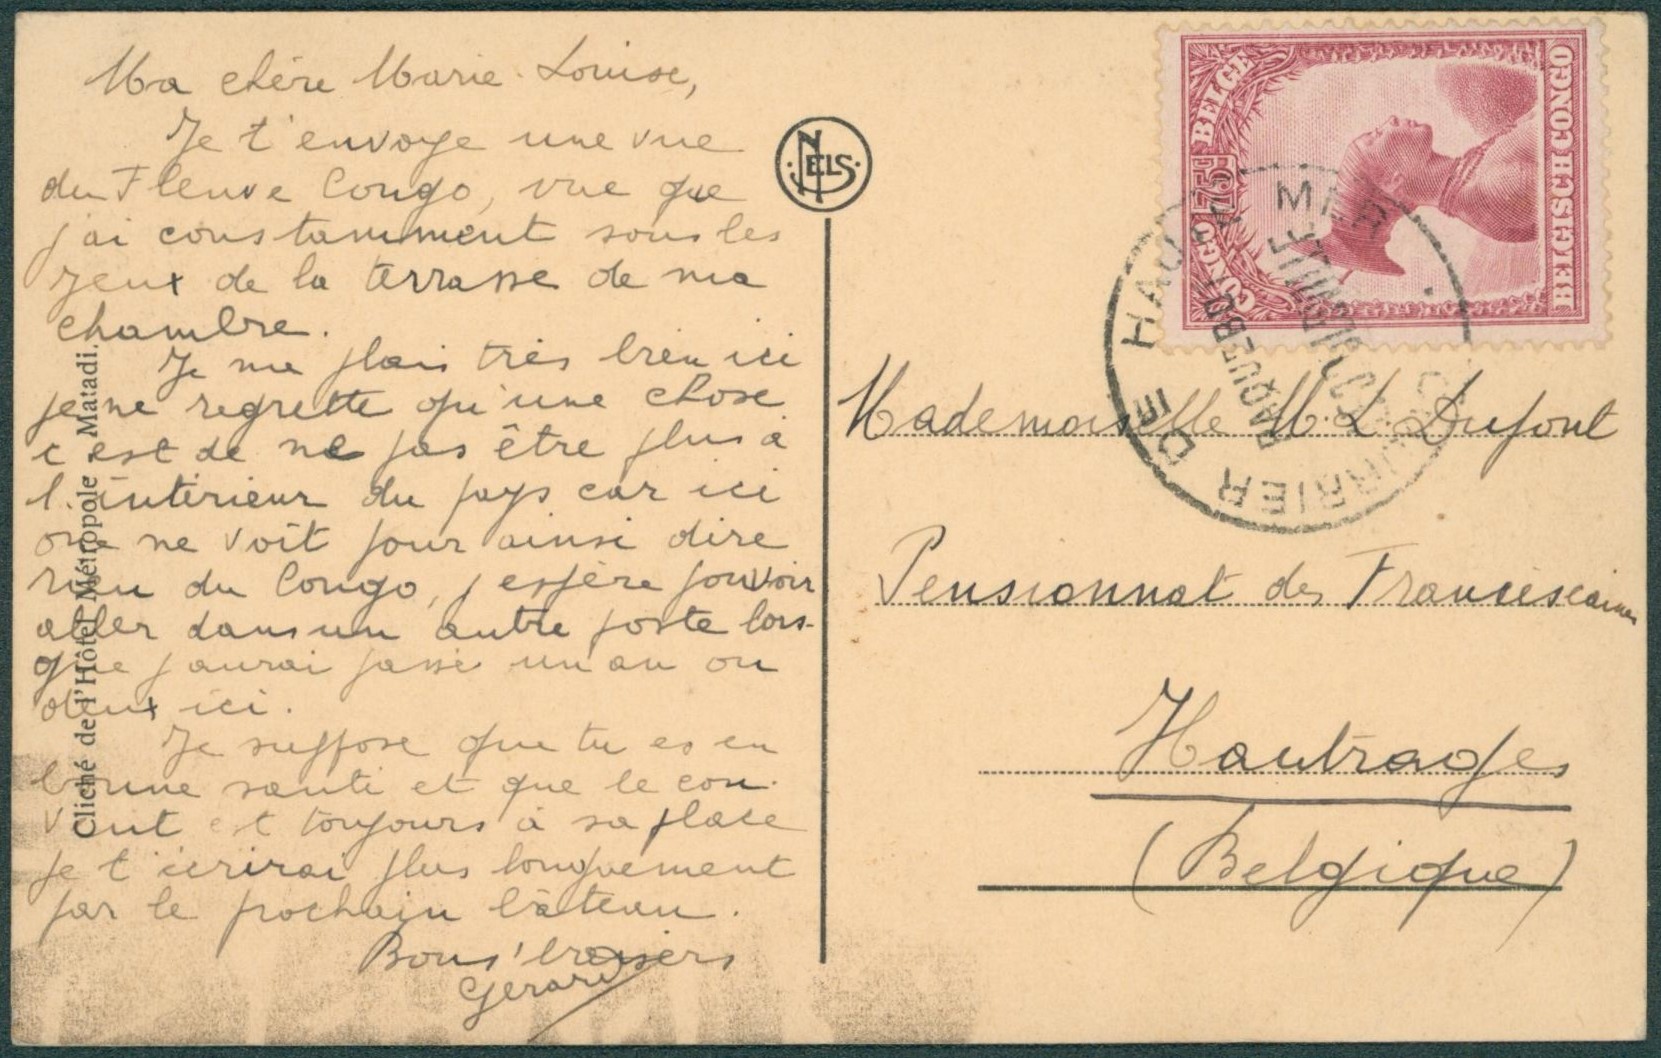 Ma chère Marie-Louise,
Je t'envoye une vue
du Fleuve Congo, vue que
j'ai constamment sous les
yeux de la terrasse de ma
chambre.
Je me plais très bien ici
je ne regrette qu'une chose
c'est de ne pas être plus à
l'intérieur du pays car ici
on ne voit pour ainsi dire
rien du Congo, j'espère pouvoir
aller dans un autre poste lors-
que j'aurai passé un an ou
deux ici.
Je suppose que tu es en
bonne santé et que le cou-
vent est toujours à sa place
Je t'écrirai plus longuement
par le prochain bâteau.
Bons baisers
Gérard
Cliché de l'Hôtel Métropole Matadi.
NELS
CONGO 75c BELGE
BELGISCH CONGO
COURRIER DE HAUTE MER
PAQUEBOT
Mademoiselle M. L. Dufont
Pensionnat des Franciscaines
Hautrages
(Belgique)